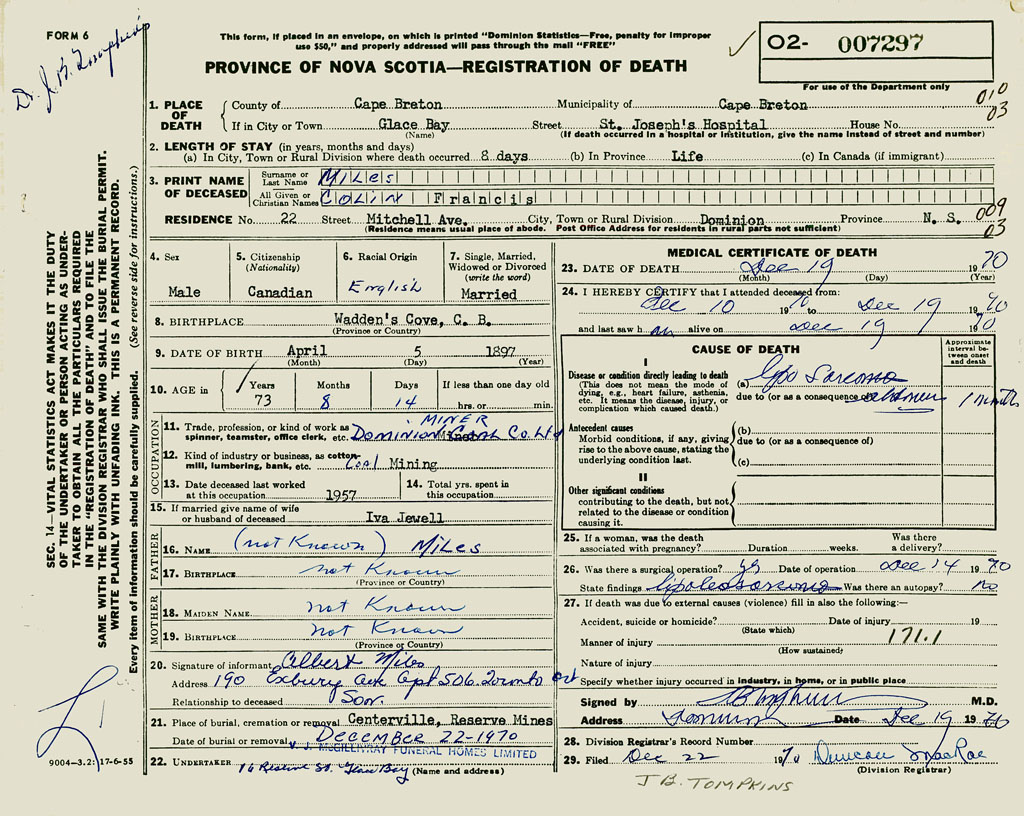 FORM 6
Dr. J. B. Tompkins
This form, if placed in an envelope, on which is printed "Dominion Statistics—Free, penalty for improper
use $50," and properly addressed will pass through the mail "FREE"
PROVINCE OF NOVA SCOTIA—REGISTRATION OF DEATH
✓ 02- 007297
For use of the Department only
010
03
1. PLACE OF DEATH County of Cape Breton Municipality of Cape Breton
If in City or Town Glace Bay Street St. Joseph's Hospital House No.
(Name) (If death occurred in a hospital or institution, give the name instead of street and number)
2. LENGTH OF STAY (in years, months and days)
(a) In City, Town or Rural Division where death occurred 8 days (b) In Province Life (c) In Canada (if immigrant)
3. PRINT NAME OF DECEASED Surname or Last Name Miles
All Given or Christian Names COLIN Francis
RESIDENCE No. 22 Street Mitchell Ave. City, Town or Rural Division Dominion Province N. S. 009
03
(Residence means usual place of abode. Post Office Address for residents in rural parts not sufficient)
SEC. 14—VITAL STATISTICS ACT MAKES IT THE DUTY
OF THE UNDERTAKER OR PERSON ACTING AS UNDER-
TAKER TO OBTAIN ALL THE PARTICULARS REQUIRED
IN THE "REGISTRATION OF DEATH" AND TO FILE THE
SAME WITH THE DIVISION REGISTRAR WHO SHALL ISSUE THE BURIAL PERMIT.
WRITE PLAINLY WITH UNFADING INK. THIS IS A PERMANENT RECORD.
Every item of information should be carefully supplied. (See reverse side for instructions.)
4. Sex
Male
5. Citizenship
(Nationality)
Canadian
6. Racial Origin
English
7. Single, Married,
Widowed or Divorced
(write the word)
Married
8. BIRTHPLACE Wadden's Cove, C. B.
(Province or Country)
9. DATE OF BIRTH April 5 1897
(Month) (Day) (Year)
10. AGE in Years Months Days If less than one day old
73 8 14 hrs. or min.
OCCUPATION
11. Trade, profession, or kind of work as
spinner, teamster, office clerk, etc. MINER
Dominion Coal Co. Ltd
12. Kind of industry or business, as cotton-
mill, lumbering, bank, etc. Coal Mining
13. Date deceased last worked
at this occupation 1957
14. Total yrs. spent in
this occupation
15. If married give name of wife
or husband of deceased Iva Jewell
FATHER
16. NAME (not Known) Miles
17. BIRTHPLACE not Known
(Province or Country)
MOTHER
18. MAIDEN NAME not Known
19. BIRTHPLACE not Known
(Province or Country)
20. Signature of informant Albert Miles
Address 190 Exbury Ave Apt 506. Toronto ont
Relationship to deceased Son.
21. Place of burial, cremation or removal Centerville, Reserve Mines
Date of burial or removal DECEMBER 22-1970
V. J. McGILLIVRAY FUNERAL HOMES LIMITED
22. UNDERTAKER 16 Reserve St. Glace Bay (Name and address)
9004—3.2: 17-6-55
MEDICAL CERTIFICATE OF DEATH
23. DATE OF DEATH Dec 19 1970
(Month) (Day) (Year)
24. I HEREBY CERTIFY that I attended deceased from:
Dec 10 1970 to Dec 19 1970
and last saw him alive on Dec 19 1970
CAUSE OF DEATH
Approximate
interval be-
tween onset
and death
I
Disease or condition directly leading to death
(This does not mean the mode of
dying, e.g., heart failure, asthenia,
etc. It means the disease, injury, or
complication which caused death.)
(a) Lipo Sarcoma
due to (or as a consequence of) abdomen 1 month
Antecedent causes
Morbid conditions, if any, giving
rise to the above cause, stating the
underlying condition last.
(b)
due to (or as a consequence of)
(c)
II
Other significant conditions
contributing to the death, but not
related to the disease or condition
causing it.
25. If a woman, was the death
associated with pregnancy? Duration weeks. Was there
a delivery?
26. Was there a surgical operation? yes Date of operation Dec 14 1970
State findings Was there an autopsy? no
27. If death was due to external causes (violence) fill in also the following:—
Accident, suicide or homicide? Date of injury 19
(State which)
Manner of injury 171.1
(How sustained)
Nature of injury
Specify whether injury occurred in industry, in home, or in public place
Signed by M.D.
Address Dominion Date Dec 19 1970
28. Division Registrar's Record Number
29. Filed Dec 22 1970 Duncan MacRae
(Division Registrar)
J B. TOMPKINS